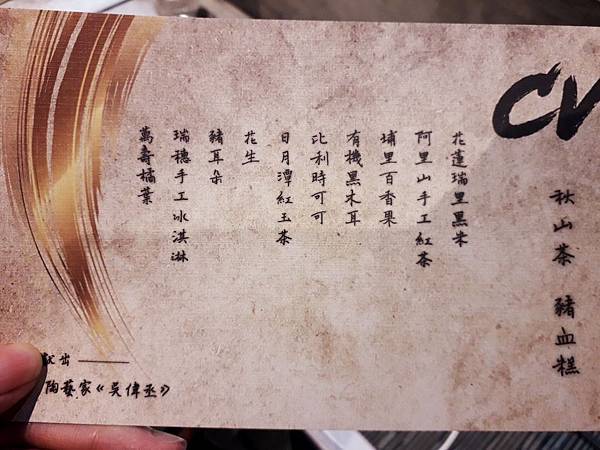 CV
秋山茶 豬血糕
花蓮瑞里黑米
阿里山手工紅茶
埔里百香果
有機黑木耳
比利時可可
日月潭紅玉茶
花生
豬耳朵
瑞穗手工冰淇淋
萬壽橘葉
獻出——
陶藝家《吳偉丞》